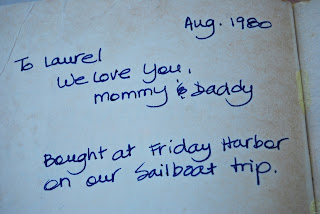 Aug. 1980
To Laurel
We Love You,
mommy & Daddy
Bought at Friday Harbor
on our Sailboat trip.